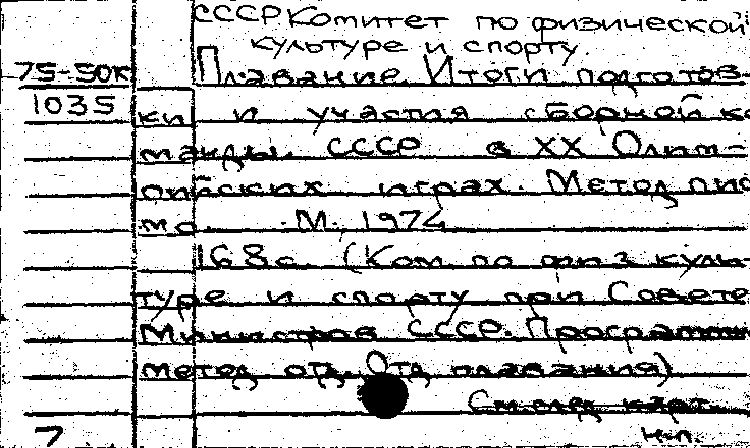 СССР Комитет по физической
культуре и спорту.
75-50К Плавание. Итоги подготов-
1035 ки и участия сборной ко-
манды СССР в XX Олим-
пийских играх. Метод. пис
мо. - М., 1974
168с. (Ком. по физ. куль-
туре и спорту при Совете
Министров СССР. Программ
метод. отд. Отд. плавания)
См. след. карт.
7 н.п.